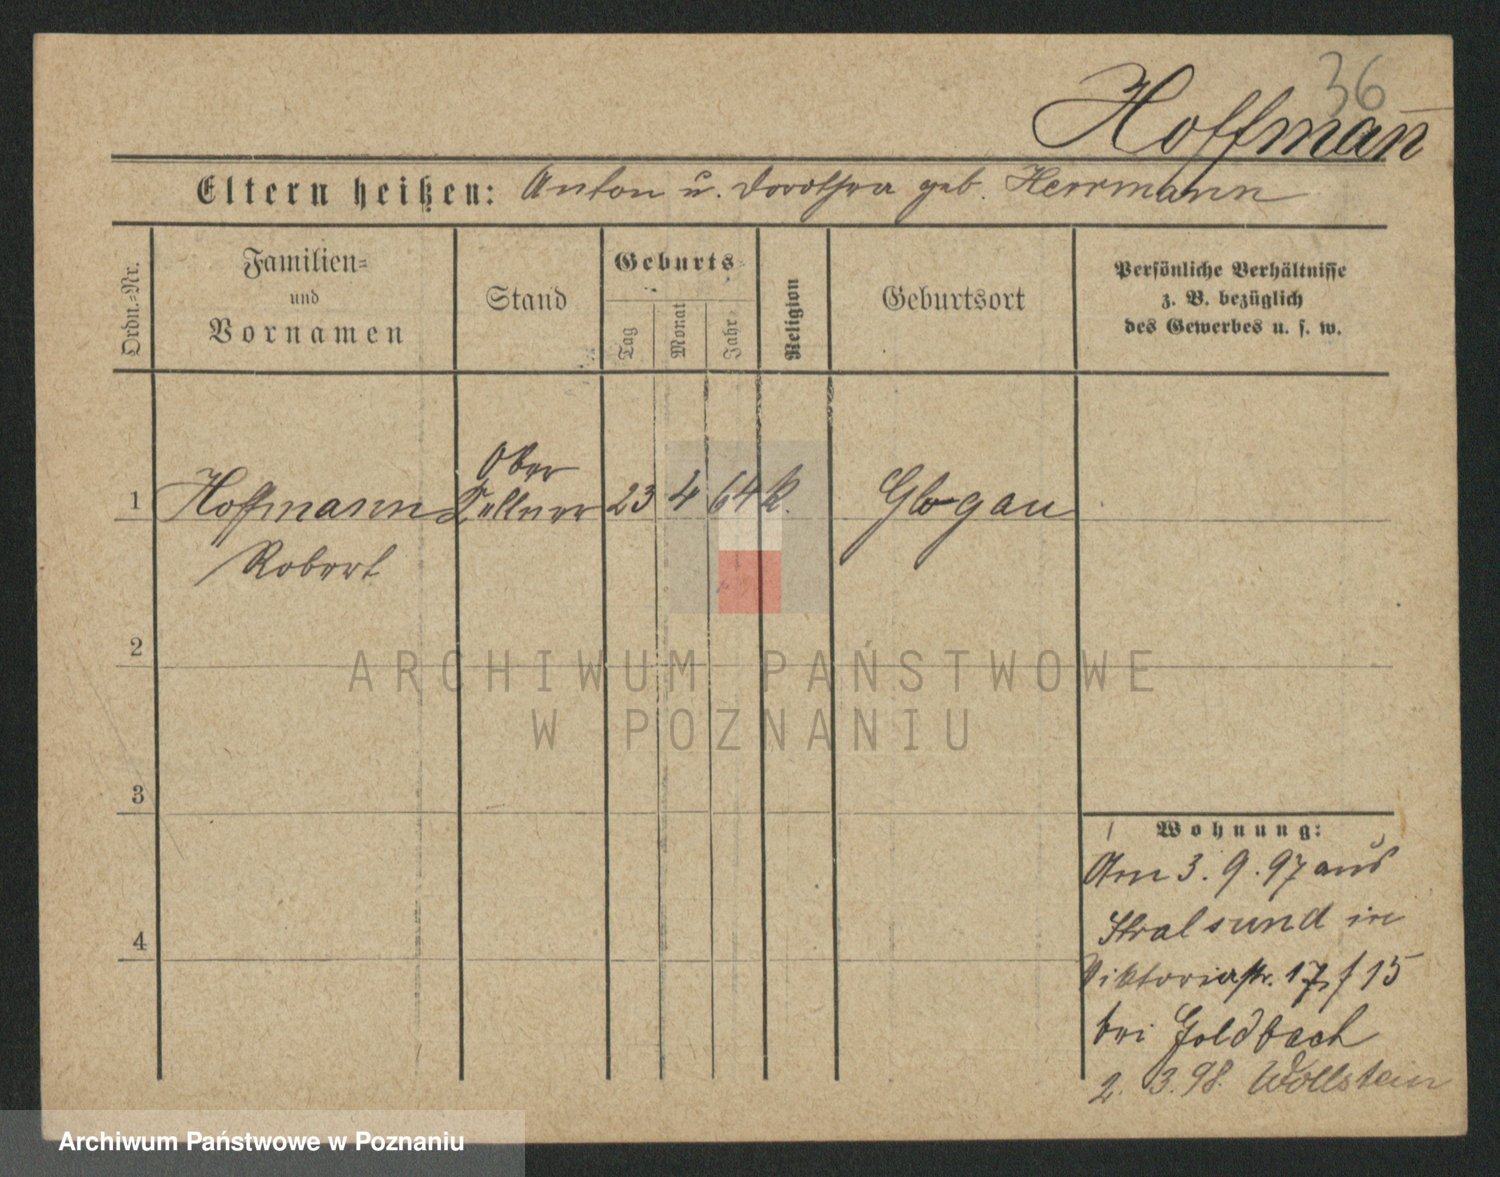 36
Hoffmañ
Eltern heißen: Anton u. Dorothea geb. Herrmann
Ordn.=Nr.
Familien=
und
Vornamen
Stand
Geburts=
Tag
Monat
Jahr
Religion
Geburtsort
Persönliche Verhältnisse
z. B. bezüglich
des Gewerbes u. s. w.
Ober
1 Hoffmann Kellner 23 4 64 k. Glogau
Robert
2
3
4
Wohnung:
Am 3. 9. 97 aus
Stralsund in
Viktoriastr. 17, f 15
bei Goldbach
2. 3. 98. Wollstein
ARCHIWUM PAŃSTWOWE
W POZNANIU
Archiwum Państwowe w Poznaniu